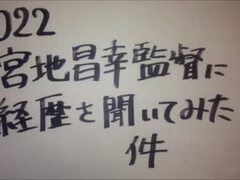 022
宮地昌幸監督に
経歴を聞いてみた
件